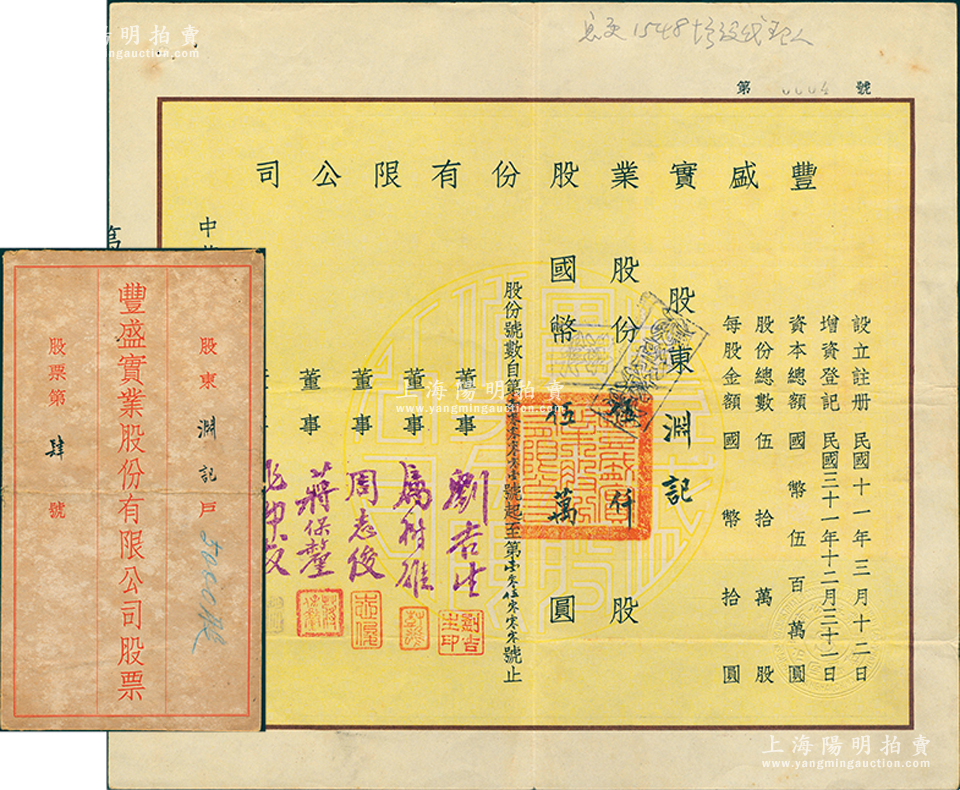 上海陽明拍賣
www.yangmingauction.com
第 0004 號
豐盛實業股份有限公司
設立註册 民國十一年三月十二日
增資登記 民國三十一年十二月三十一日
資本總額 國幣伍百萬圓
股份總數 伍拾萬股
每股金額 國幣拾圓
股東 淵記
股份 伍仟 股
國幣 伍萬 圓
號起至第壹零伍零零零號止
股份號數自第
董事 劉吉生
董事 厲樹雄
董事 周志俊
董事 蔣保釐
董事
中
豐盛實業股份有限公司股票
股東 淵記 戶
5000股
股票第 肆 號
上海陽明拍賣
www.yangmingauction.com
上海陽明拍賣
www.yangmingauction.com